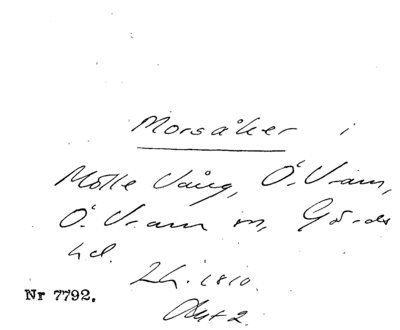 Morsåker i
Mölle Vång, Ö. Vram,
Ö. Vram sn, Gärds
hd.
Lh. 1810.
Akt 2.
Nr 7792.